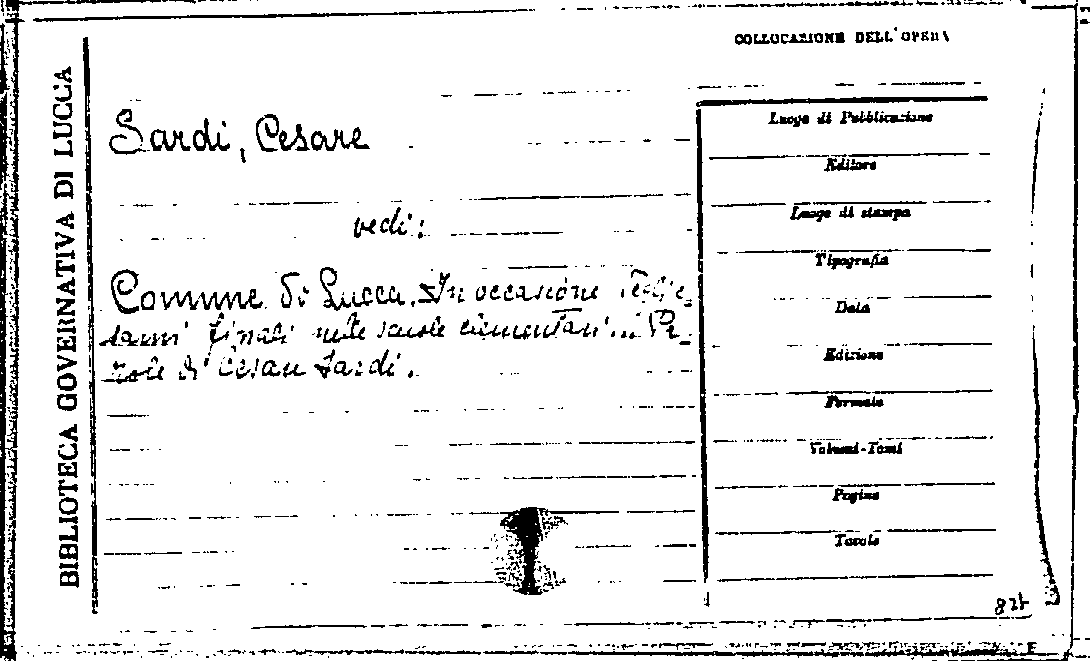 BIBLIOTECA GOVERNATIVA DI LUCCA
COLLOCAZIONE DELL'OPERA
Sardi, Cesare
vedi:
Comune di Lucca. In occasione degli e-
sami finali nelle scuole elementari. Pa-
role di Cesare Sardi.
Luogo di Pubblicazione
Editore
Luogo di stampa
Tipografia
Data
Edizione
Formato
Volumi-Tomi
Pagine
Tavole